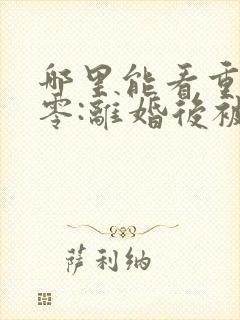 哪里能看重
零:離婚後被
萨利纳